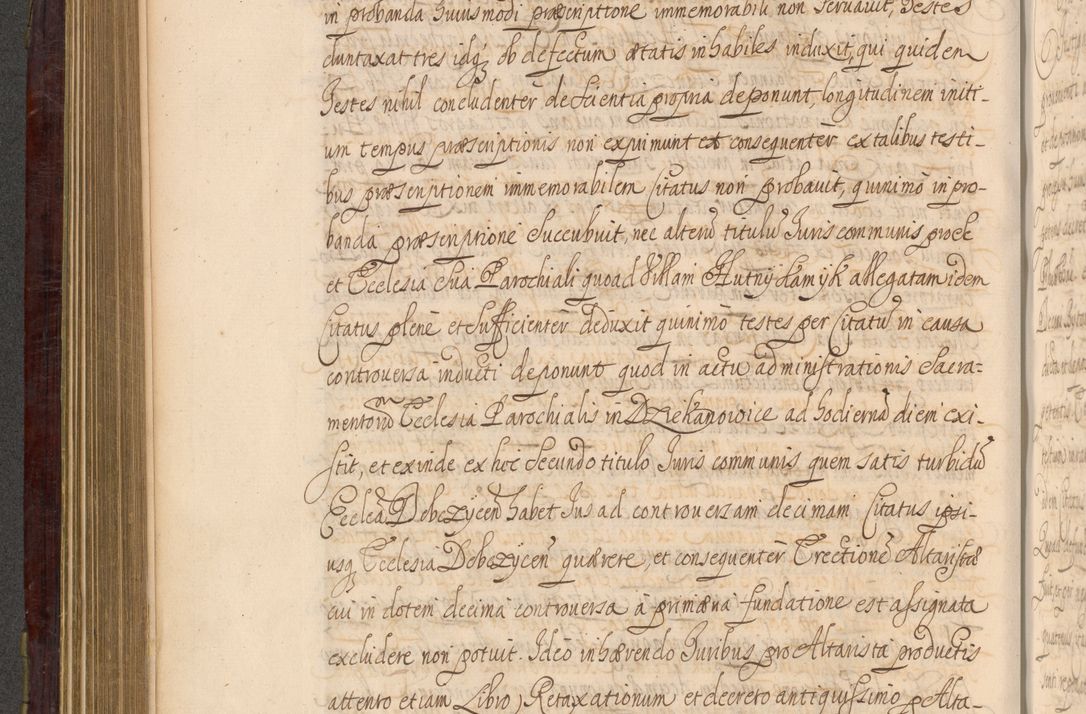 in probanda huiusmodi præscriptione immemorabili non servavit, Testes
duntaxat tres idq; ob defectum ætatis inhabiles induxit, qui quidem
Testes nihil concludenter de scientia propria deponunt, longitudinem initi-
um tempus præscriptionis non exprimunt et consequenter ex talibus testi-
bus præscriptionem immemorabilem Citatus non probavit, quinimò in pro-
banda præscriptione succubuit, nec alterũ titulũ Juris communis pro se
et Ecclesia sua Parochiali quoad Villam Hutny Kamyk allegatam idem
Citatus plenè et sufficienter deduxit quinimò testes per Citatũ in causa
controversa inducti deponunt quod in actu administrationis Sacra-
mentorũ Ecclesia Parochialis in Dziekanowice ad hodiernã diem exi-
stit, et exinde ex hoc secundo titulo Juris communis quem satis turbidũ
Ecclea Dobczyceñ habet Jus ad controversam decimam Citatus ipsi-
usq; Ecclesia Dobczyceñ quærere, et consequenter Erectionẽ Altaristæ
cui in dotem decima controversa à primæva fundatione est assignata
excludere non potuit. Ideò inhærendo Juribus pro Altarista productis
attento etiam Libro Retaxationum et decreto antiquissimo p Alta-